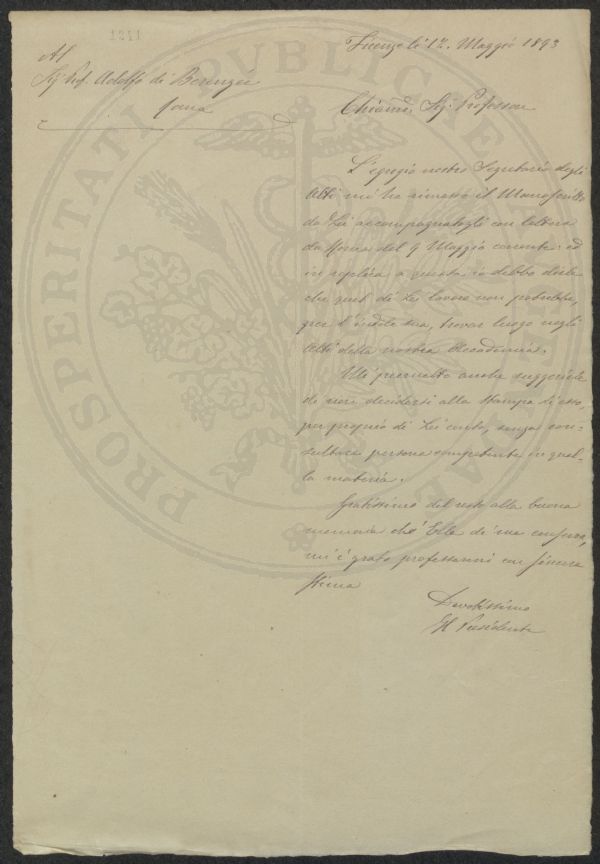 1211
Firenze li 12. Maggio 1893
Al
Sig. Prof. Adolfo di Berenger
Roma
Chiarmo Sig. Professore
L'egregio nostro Segretario degli
Atti mi ha rimesso il Manoscritto
da Lei accompagnatogli con lettera
da Roma del 9 Maggio corrente: ed
in replica a questa io debbo dirle
che quel di Lei lavoro non potrebbe,
per l'indole sua, trovar luogo negli
Atti della nostra Accademia.
Mi permetto anche suggerirle
di non decidersi alla stampa di esso,
per proprio di Lei conto, senza con-
sultare persona competente in quel-
la materia.
Gratissimo del resto alla buona
memoria che Ella di me conserva,
mi è grato professarmi con sincera
stima
Devotissimo
Il Presidente
PROSPERITATI PVBLICAE